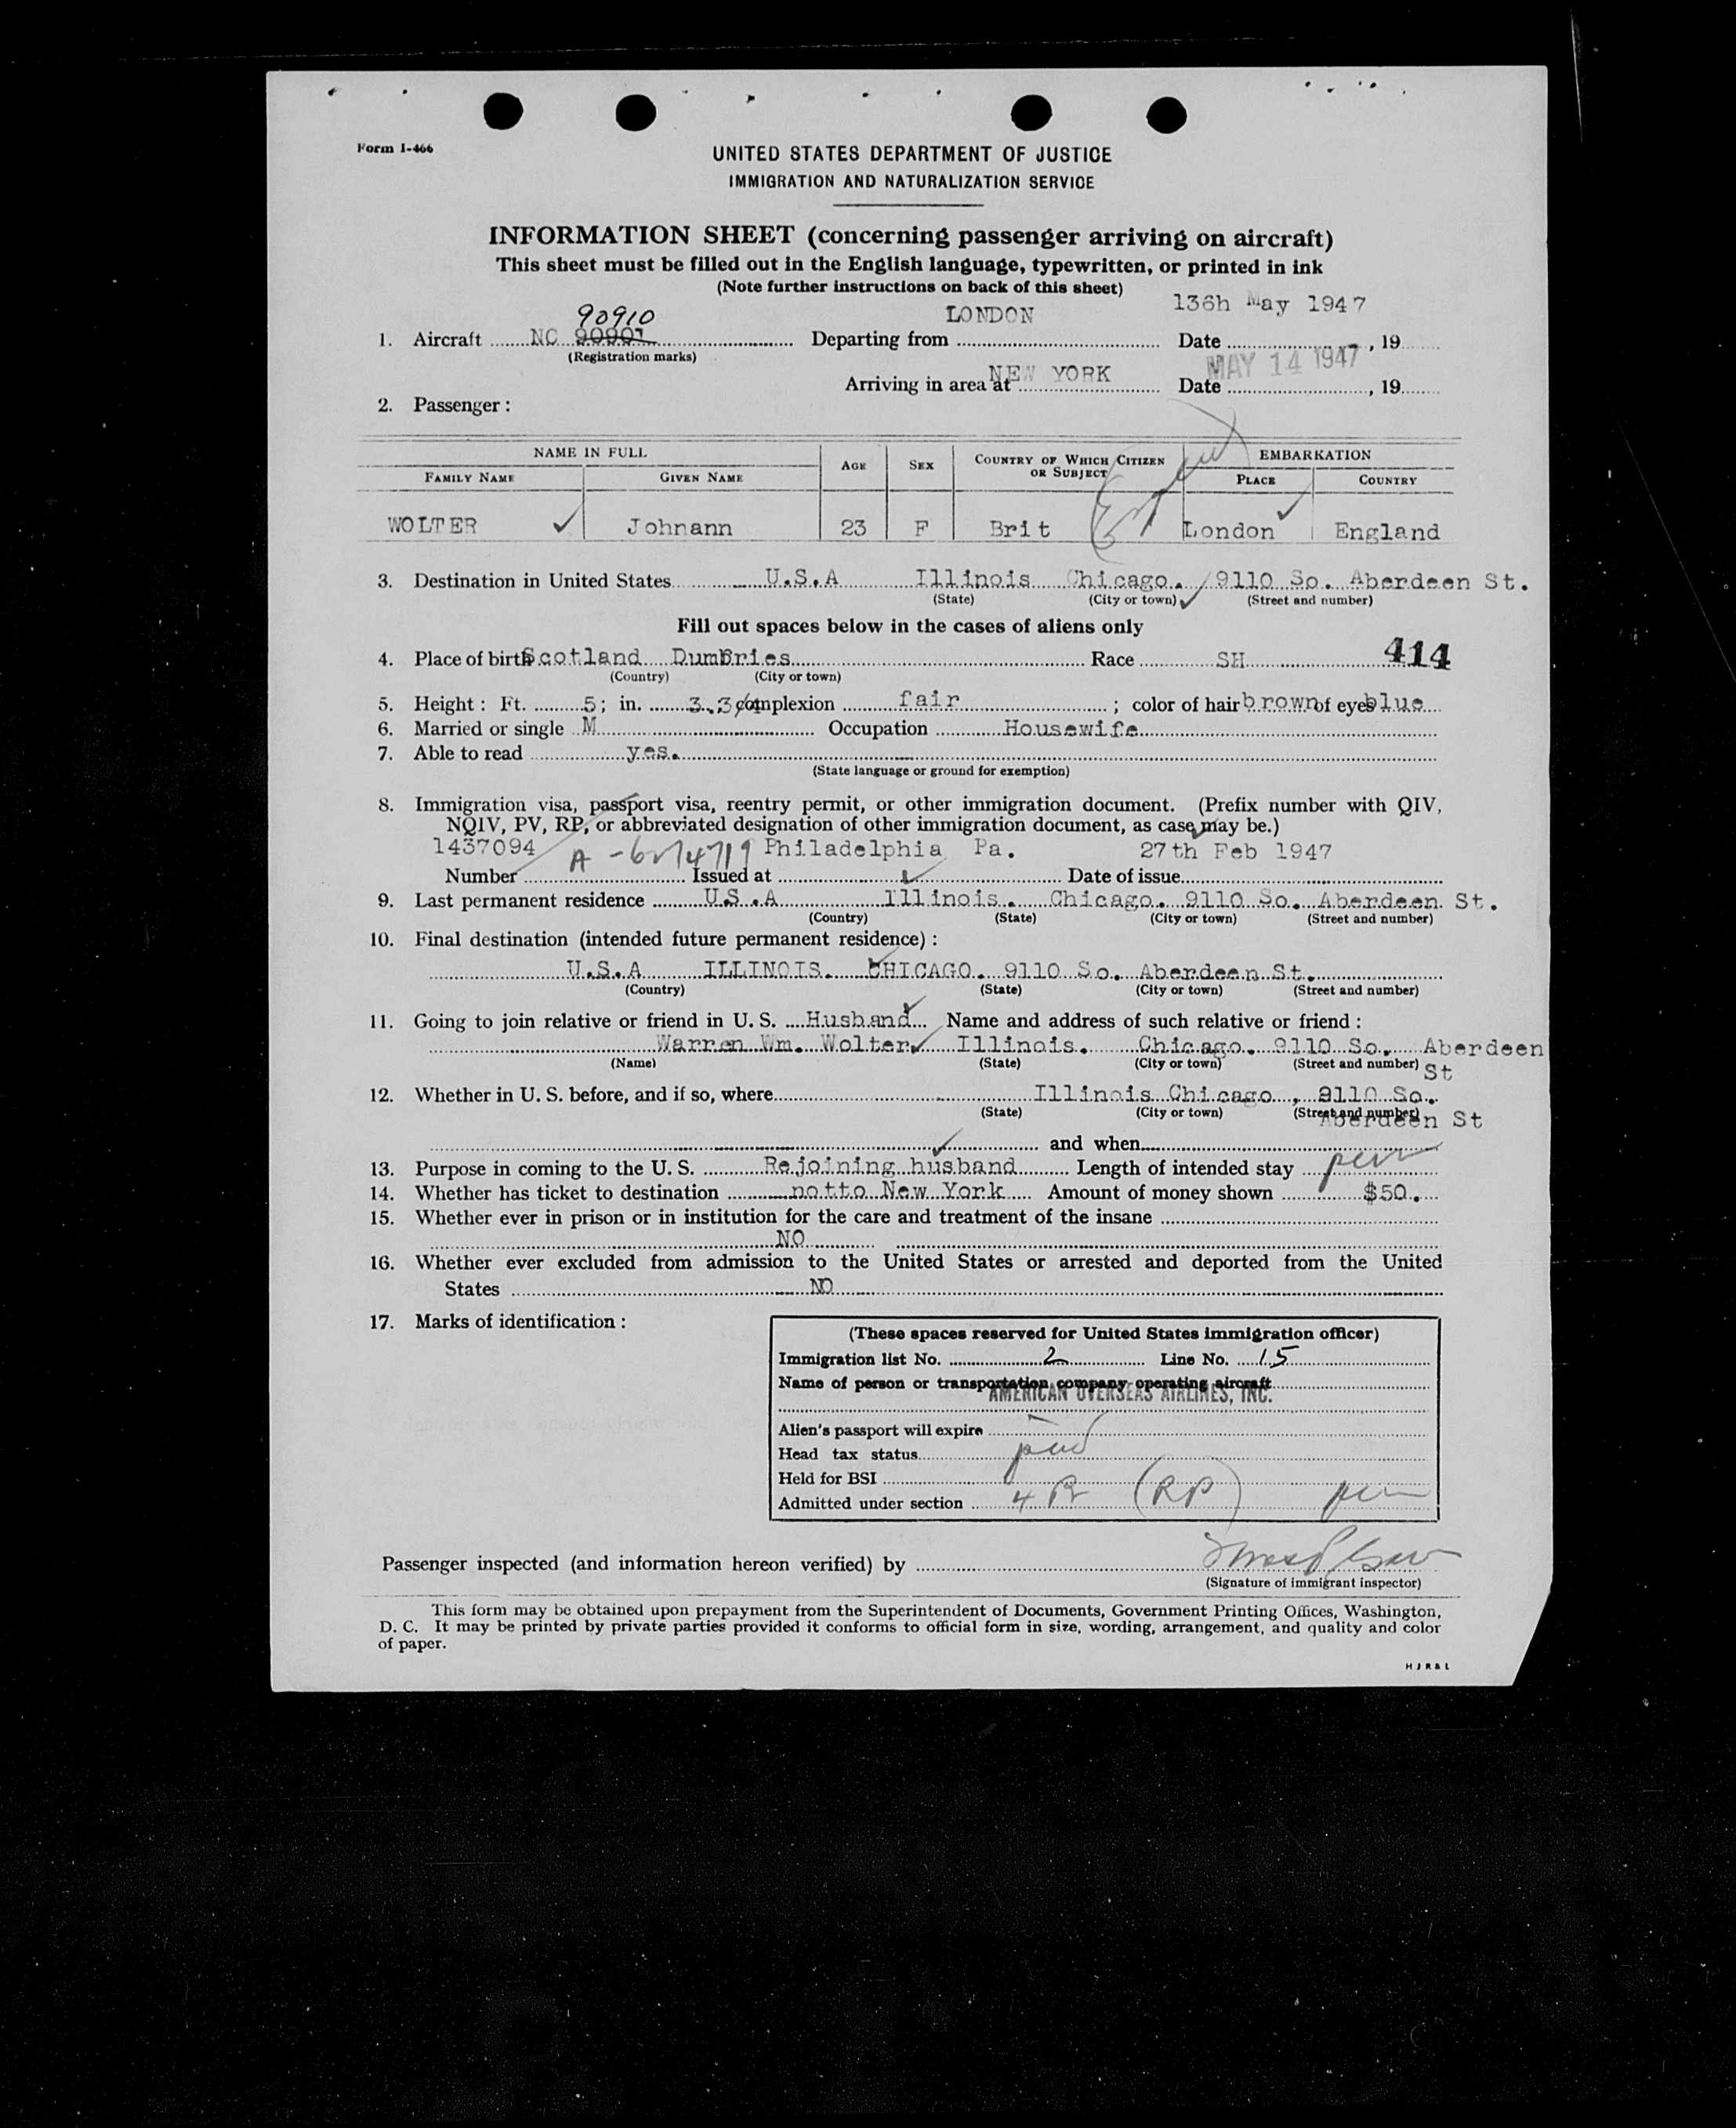 Form I-466
UNITED STATES DEPARTMENT OF JUSTICE
IMMIGRATION AND NATURALIZATION SERVICE
INFORMATION SHEET (concerning passenger arriving on aircraft)
This sheet must be filled out in the English language, typewritten, or printed in ink
(Note further instructions on back of this sheet)
90910 LONDON 136h May 1947
1. Aircraft NC 90901 Departing from Date , 19
(Registration marks) MAY 14 1947
Arriving in area at NEW YORK Date , 19
2. Passenger :
NAME IN FULL AGE SEX COUNTRY OF WHICH CITIZEN OR SUBJECT EMBARKATION
FAMILY NAME GIVEN NAME PLACE COUNTRY
WOLTER Johnann 23 F Brit London England
3. Destination in United States U.S.A Illinois Chicago. 9110 So. Aberdeen St.
(State) (City or town) (Street and number)
Fill out spaces below in the cases of aliens only
4. Place of birth Scotland Dumfries Race SH 414
(Country) (City or town)
5. Height : Ft. 5 ; in. 3.3/4 ; complexion fair ; color of hair brown of eyes blue
6. Married or single M Occupation Housewife
7. Able to read yes.
(State language or ground for exemption)
8. Immigration visa, passport visa, reentry permit, or other immigration document. (Prefix number with QIV,
NQIV, PV, RP, or abbreviated designation of other immigration document, as case may be.)
1437094 Philadelphia Pa. 27th Feb 1947
Number Issued at Date of issue
9. Last permanent residence U.S.A Illinois. Chicago. 9110 So. Aberdeen St.
(Country) (State) (City or town) (Street and number)
10. Final destination (intended future permanent residence) :
U.S.A ILLINOIS. CHICAGO. 9110 So. Aberdeen St.
(Country) (State) (City or town) (Street and number)
11. Going to join relative or friend in U. S. Husband Name and address of such relative or friend :
Warren Wm. Wolter Illinois. Chicago. 9110 So. Aberdeen
(Name) (State) (City or town) (Street and number) St
12. Whether in U. S. before, and if so, where Illinois Chicago , 9110 So.
(State) (City or town) (Street and number)
Aberdeen St
and when
13. Purpose in coming to the U. S. Rejoining husband Length of intended stay perm
14. Whether has ticket to destination notto New York Amount of money shown $50.
15. Whether ever in prison or in institution for the care and treatment of the insane
NO
16. Whether ever excluded from admission to the United States or arrested and deported from the United
States NO
17. Marks of identification :
(These spaces reserved for United States immigration officer)
Immigration list No. 2 Line No. 15
Name of person or transportation company operating aircraft
AMERICAN OVERSEAS AIRLINES, INC.
Alien's passport will expire
Head tax status
Held for BSI
Admitted under section 4 B (RP) perm
Passenger inspected (and information hereon verified) by
(Signature of immigrant inspector)
This form may be obtained upon prepayment from the Superintendent of Documents, Government Printing Offices, Washington,
D. C. It may be printed by private parties provided it conforms to official form in size, wording, arrangement, and quality and color
of paper.
H J R & L